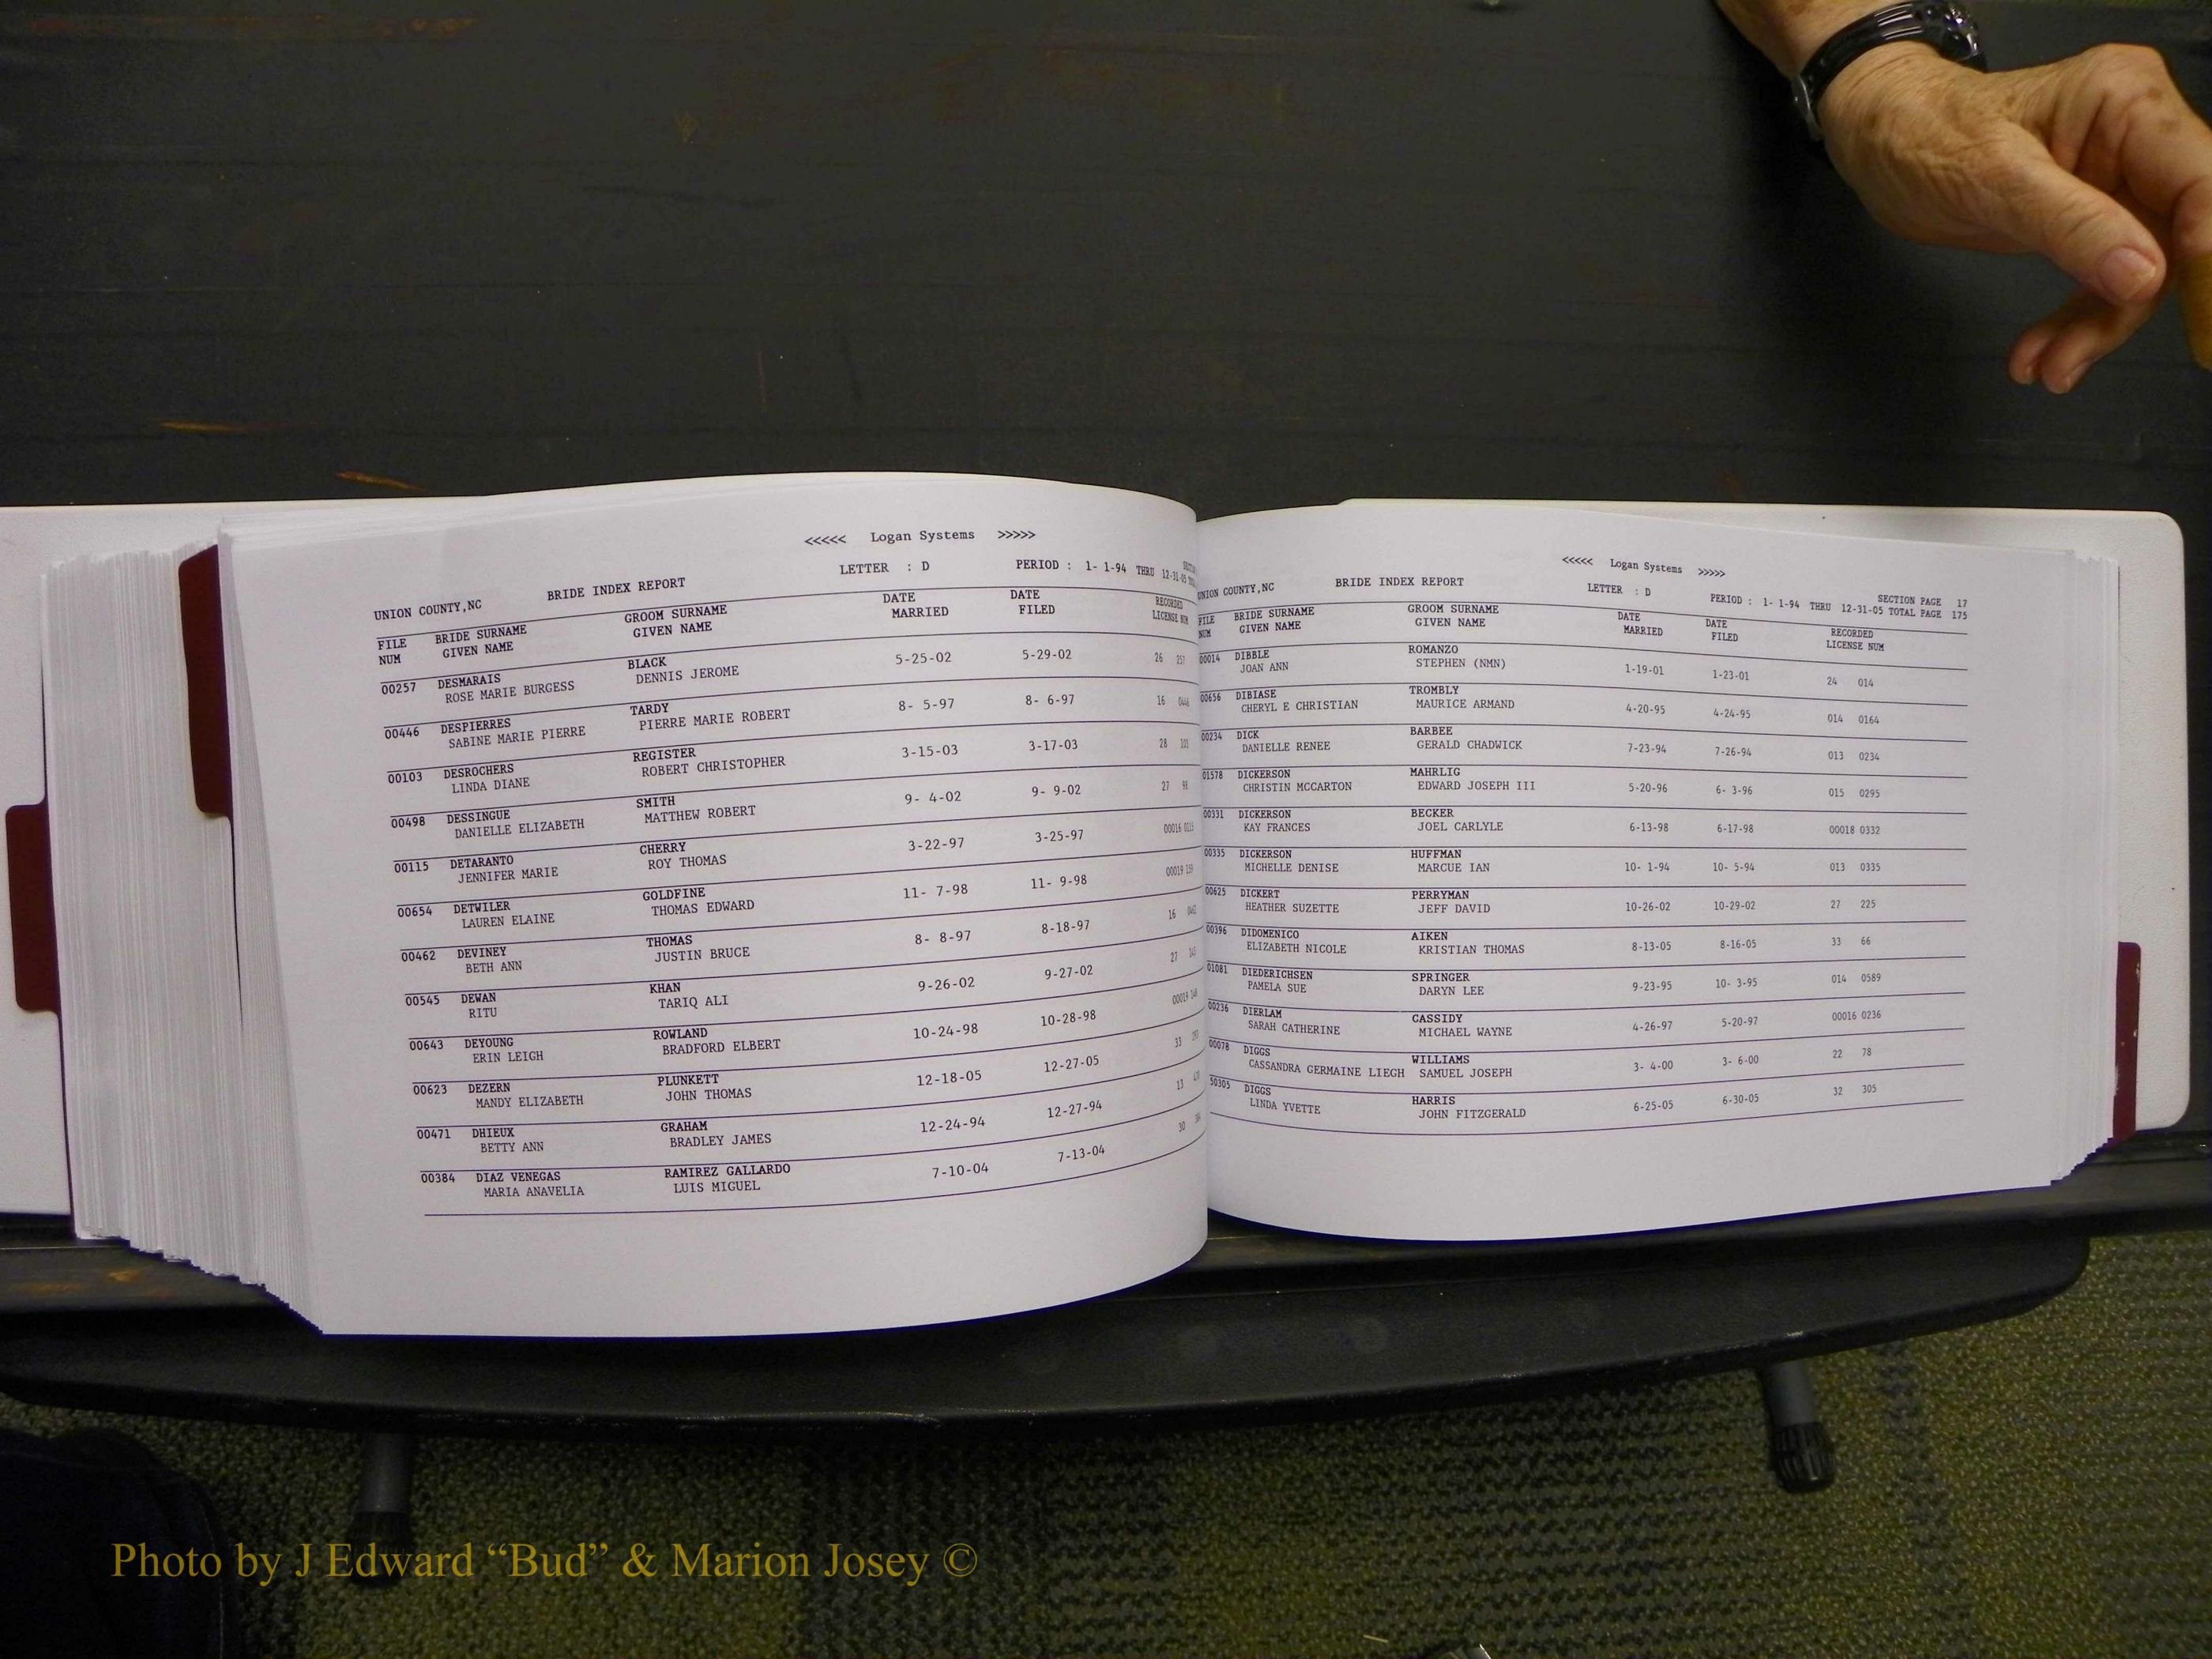 <<<<< Logan Systems >>>>>
UNION COUNTY,NC BRIDE INDEX REPORT LETTER : D PERIOD : 1- 1-94 THRU 12-31-05
FILE BRIDE SURNAME GROOM SURNAME DATE DATE RECORDED
NUM GIVEN NAME GIVEN NAME MARRIED FILED LICENSE NUM
00257 DESMARAIS BLACK 5-25-02 5-29-02 26 257
ROSE MARIE BURGESS DENNIS JEROME
00446 DESPIERRES TARDY 8- 5-97 8- 6-97 16 0446
SABINE MARIE PIERRE PIERRE MARIE ROBERT
00103 DESROCHERS REGISTER 3-15-03 3-17-03 28 103
LINDA DIANE ROBERT CHRISTOPHER
00498 DESSINGUE SMITH 9- 4-02 9- 9-02 27 98
DANIELLE ELIZABETH MATTHEW ROBERT
00115 DETARANTO CHERRY 3-22-97 3-25-97 00016 0115
JENNIFER MARIE ROY THOMAS
00654 DETWILER GOLDFINE 11- 7-98 11- 9-98 00019
LAUREN ELAINE THOMAS EDWARD
00462 DEVINEY THOMAS 8- 8-97 8-18-97 16
BETH ANN JUSTIN BRUCE
00545 DEWAN KHAN 9-26-02 9-27-02 27
RITU TARIQ ALI
00643 DEYOUNG ROWLAND 10-24-98 10-28-98 00019
ERIN LEIGH BRADFORD ELBERT
00623 DEZERN PLUNKETT 12-18-05 12-27-05 33
MANDY ELIZABETH JOHN THOMAS
00471 DHIEUX GRAHAM 12-24-94 12-27-94 13
BETTY ANN BRADLEY JAMES
00384 DIAZ VENEGAS RAMIREZ GALLARDO 7-10-04 7-13-04 30
MARIA ANAVELIA LUIS MIGUEL
<<<<< Logan Systems >>>>>
UNION COUNTY,NC BRIDE INDEX REPORT LETTER : D SECTION PAGE 17
PERIOD : 1- 1-94 THRU 12-31-05 TOTAL PAGE 175
FILE BRIDE SURNAME GROOM SURNAME DATE DATE RECORDED
NUM GIVEN NAME GIVEN NAME MARRIED FILED LICENSE NUM
00014 DIBBLE ROMANZO 1-19-01 1-23-01 24 014
JOAN ANN STEPHEN (NMN)
00656 DIBIASE TROMBLY 4-20-95 4-24-95 014 0164
CHERYL E CHRISTIAN MAURICE ARMAND
00234 DICK BARBEE 7-23-94 7-26-94 013 0234
DANIELLE RENEE GERALD CHADWICK
01578 DICKERSON MAHRLIG 5-20-96 6- 3-96 015 0295
CHRISTIN MCCARTON EDWARD JOSEPH III
00331 DICKERSON BECKER 6-13-98 6-17-98 00018 0332
KAY FRANCES JOEL CARLYLE
00335 DICKERSON HUFFMAN 10- 1-94 10- 5-94 013 0335
MICHELLE DENISE MARCUE IAN
00625 DICKERT PERRYMAN 10-26-02 10-29-02 27 225
HEATHER SUZETTE JEFF DAVID
00396 DIDOMENICO AIKEN 8-13-05 8-16-05 33 66
ELIZABETH NICOLE KRISTIAN THOMAS
01081 DIEDERICHSEN SPRINGER 9-23-95 10- 3-95 014 0589
PAMELA SUE DARYN LEE
00236 DIERLAM CASSIDY 4-26-97 5-20-97 00016 0236
SARAH CATHERINE MICHAEL WAYNE
00078 DIGGS WILLIAMS 3- 4-00 3- 6-00 22 78
CASSANDRA GERMAINE LIEGH SAMUEL JOSEPH
50305 DIGGS HARRIS 6-25-05 6-30-05 32 305
LINDA YVETTE JOHN FITZGERALD
Photo by J Edward “Bud” & Marion Josey ©